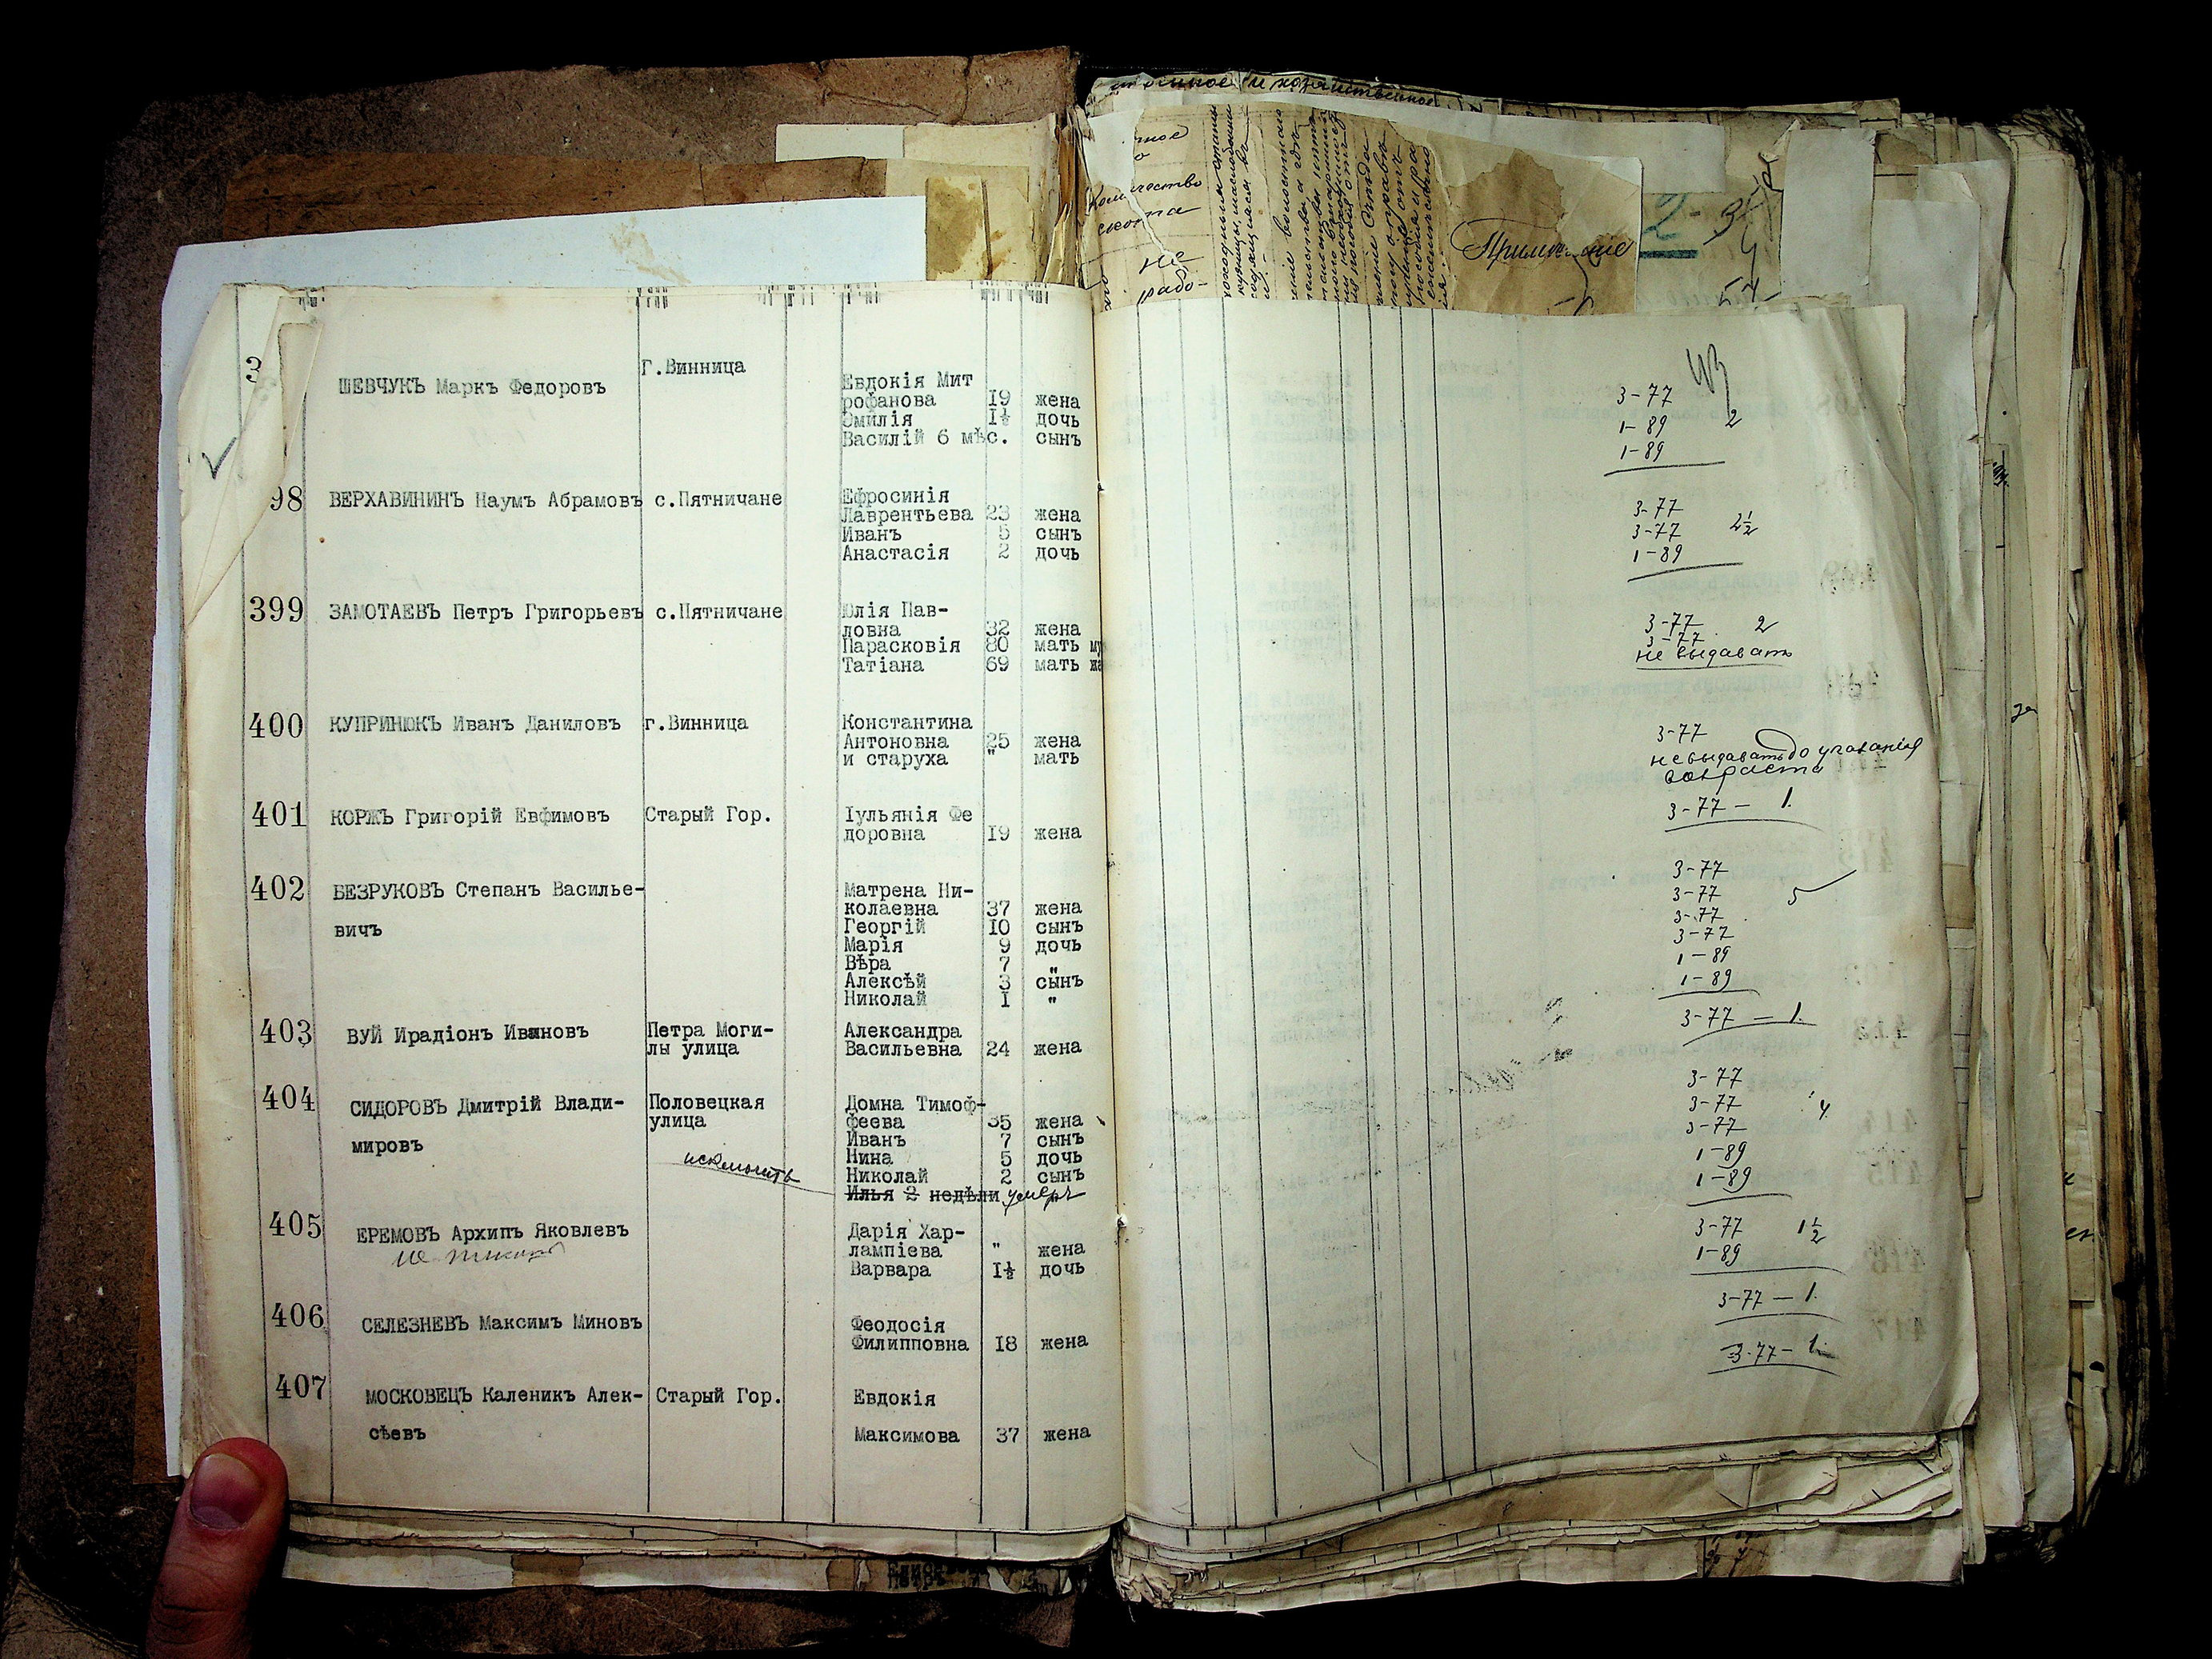 3
ШЕВЧУКЪ Маркъ Федоровъ
Г.Винница
Евдокія Мит
рофанова 19 жена
Эмилія 1½ дочь
Василій 6 мѣс. сынъ
98 ВЕРХАВИНИНЪ Наумъ Абрамовъ с.Пятничане Ефросинія
Лаврентьева 23 жена
Иванъ 5 сынъ
Анастасія 2 дочь
399 ЗАМОТАЕВЪ Петръ Григорьевъ с.Пятничане Юлія Пав-
ловна 32 жена
Парасковія 80 мать
Татіана 69 мать
400 КУПРИНЮКЪ Иванъ Даниловъ г.Винница Константина
Антоновна 25 жена
и старуха " мать
401 КОРЖЪ Григорій Евфимовъ Старый Гор. Іульянія Фе
доровна 19 жена
402 БЕЗРУКОВЪ Степанъ Василье-
вичъ
Матрена Ни-
колаевна 37 жена
Георгій 10 сынъ
Марія 9 дочь
Вѣра 7 "
Алексѣй 3 сынъ
Николай 1 "
403 ВУЙ Ирадіонъ Ивановъ Петра Моги-
лы улица
Александра
Васильевна 24 жена
404 СИДОРОВЪ Дмитрій Влади-
мировъ
Половецкая
улица
исключить
Домна Тимоф-
феева 35 жена
Иванъ 7 сынъ
Нина 5 дочь
Николай 2 сынъ
Илья 2 недѣли умеръ
405 ЕРЕМОВЪ Архипъ Яковлевъ
Дарія Хар-
лампіева " жена
Варвара 1½ дочь
406 СЕЛЕЗНЕВЪ Максимъ Миновъ Феодосія
Филипповна 18 жена
407 МОСКОВЕЦЪ Каленикъ Алек-
сѣевъ
Старый Гор. Евдокія
Максимова 37 жена
3-77
1-89 2
1-89
3-77
3-77 2½
1-89
3-77 2
3-77
не выдавать
3-77
не выдавать до указанія
возраста
3-77 — 1.
3-77
3-77 5
3-77
3-77
1-89
1-89
3-77 — 1.
3-77
3-77 4
3-77
1-89
1-89
3-77 1½
1-89
3-77 — 1.
3-77 — 1.
Количество
скота
не
рабо-
Примѣчаніе